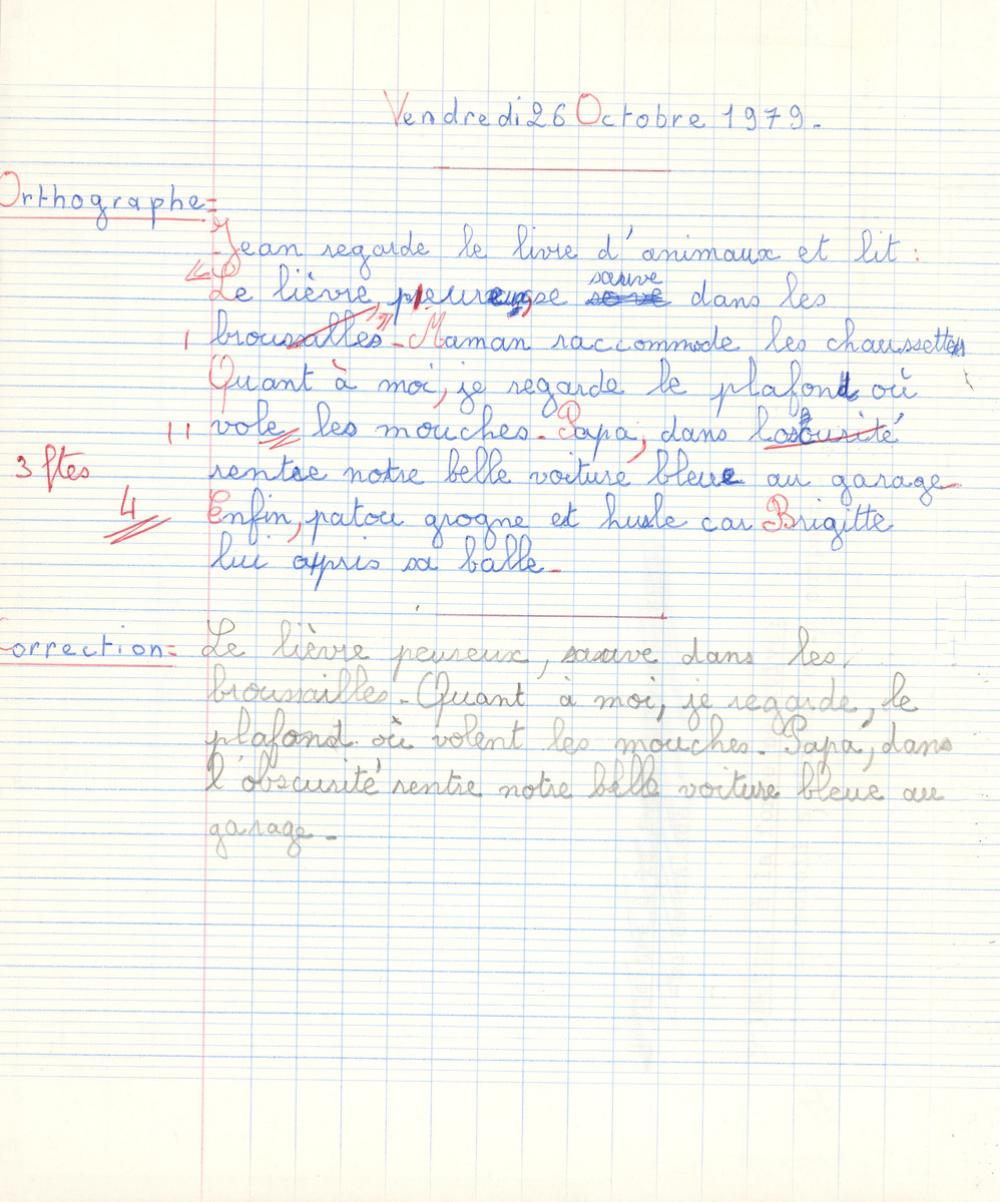 Vendredi 26 Octobre 1979.
Orthographe =
Jean regarde le livre d'animaux et lit :
"Le lièvre, peureux, se sauve dans les
1 broussalles". Maman raccommode les chaussettes
Quant à moi, je regarde le plafond où
11 vole les mouches. Papa, dans losburité
3 ftes rentre notre belle voiture bleue au garage.
4 Enfin, patou grogne et hurle car Brigitte
lui appris sa balle.
Correction = Le lièvre peureux, sauve dans les
broussailles. Quant à moi, je regarde, le
plafond où volent les mouches. Papa, dans
l'obscurité rentre notre belle voiture bleue au
garage.